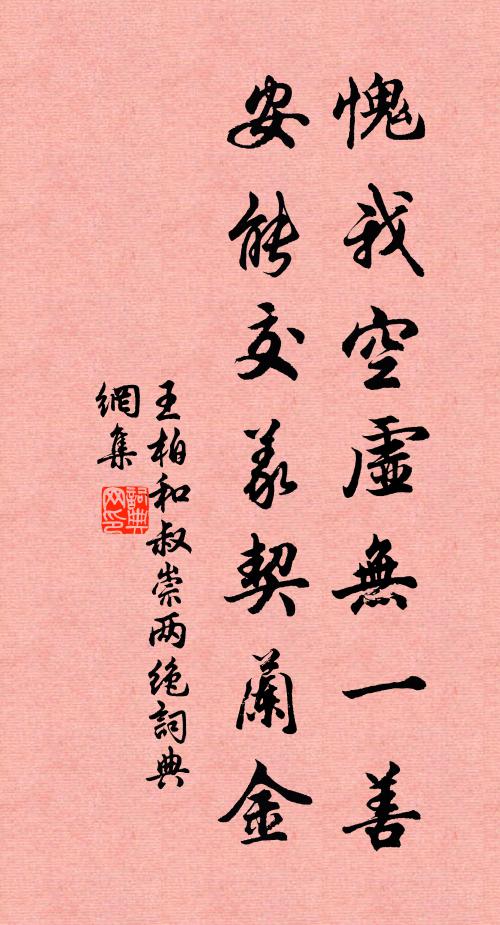 愧我空虛無一善
安能交義契蘭金
王柏和叔崇两绝詞典
網集
詞典
网印